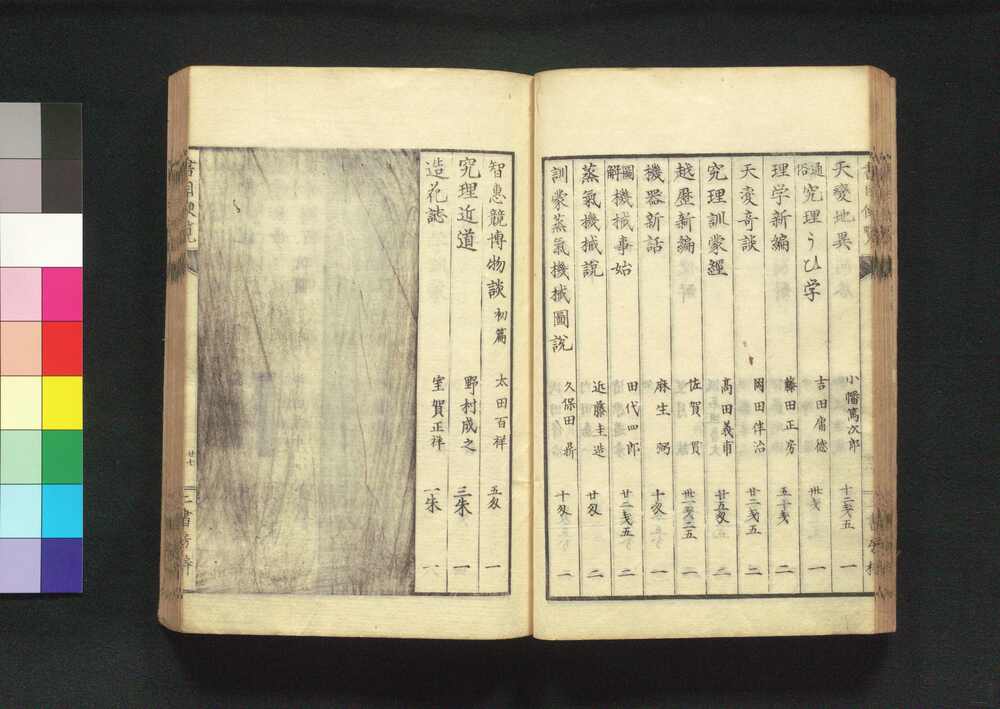 天變地異 小幡篤次郎 十二匁五 一
通俗究理うひ学 吉田庸徳 卅匁 一
理学新編 藤田正房 五十匁 二
天変奇談 岡田伴治 廿二匁五 二
究理訓蒙經 高田義甫 廿五匁 二
越歴新編 佐賀 貫 二
機器新話 麻生 弼 十匁 一
圖解機械事始 田代四郎 廿二匁五 二
蒸氣機械説 近藤圭造 廿匁 二
訓蒙蒸氣機械圖説 久保田 十匁 一
智惠競博物談 初篇 太田百祥 五匁 一
究理近道 野村成之 三朱 一
造花誌 室賀正祥 一朱
廿七